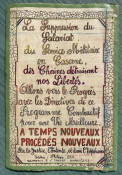 La Suppression du
Salariat
du Service Militaire
en Caserne,
des Chaînes détruisent
nos Libertés.
Allons vers le Progrès
par les Directives de ce
Programme Constructif
pour une Vie
A TEMPS NOUVEAUX
PROCÉDÉS NOUVEAUX